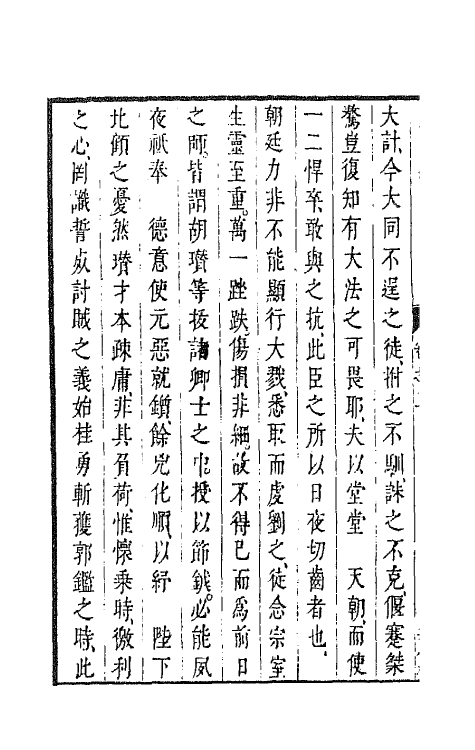 大計今大同不逞之徒拊之不馴誅之不克偃蹇桀
驁豈復知有大法之可畏耶夫以堂堂　天朝而使
一二悍卒敢與之抗此臣之所以日夜切齒者也
朝廷力非不能顯行大戮悉取而虔劉之徒念宗室
生靈至重萬一跌跌傷損非細故不得已而爲前日
之師皆謂胡瓚等拔諸卿士之中授以節鉞必能夙
夜祇奉　德意使元惡就鑕餘兇化順以紓　陛下
北顧之憂然瓚才本疎庸非其負荷惟懷乘時徼利
之心罔識誓衆討賊之義始桂勇斬獲郭鑑之時此